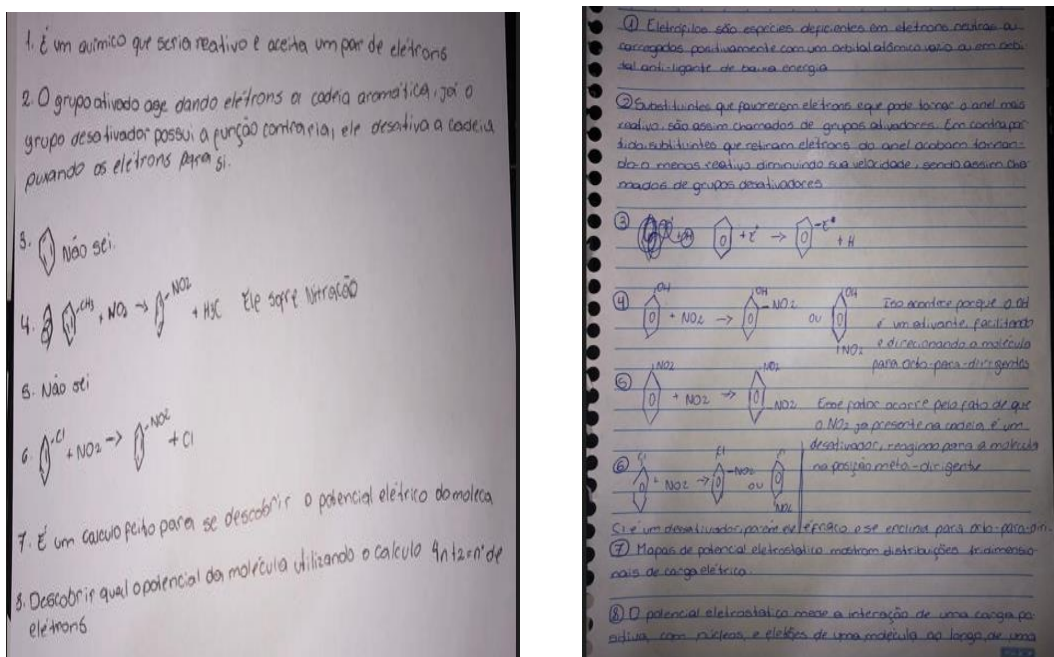 1. É um químico que seria reativo e aceita um par de elétrons
2. O grupo ativado age dando elétrons a cadeia aromática, já o
grupo desativador possui a função contraria, ele desativa a cadeia
puxando os elétrons para si.
3. Não sei.
4. CH3 + NO2 → NO2 + H3C Ele sofre Nitração
5. Não sei
6. Cl + NO2 → NO2 + Cl
7. É um calculo feito para se descobrir o potencial elétrico do moleca
8. Descobrir qual o potencial da molécula utilizando o calculo 4n+2=n° de
elétrons
① Eletrófilos são espécies deficientes em eletrons neutras ou
carregadas positivamente com um orbital atômico vazio ou em orbi
tal anti-ligante de baixa energia
② Substituintes que favorecem eletrons e que pode tornar o anel mais
reativo, são assim chamados de grupos ativadores. Em contrapar
tida substituintes que retiram eletrons do anel acabam tornan-
do-o menos reativo diminuindo sua velocidade, sendo assim cha
mados de grupos desativadores
③ + E+ → E+
+ H
④ OH + NO2 → OH NO2 ou OH NO2
Isso acontece porque o OH
é um ativante, facilitando
e direcionando a molécula
para orto-para-dirigentes
⑤ NO2 + NO2 → NO2 NO2
Esse fator ocorre pelo fato de que
o NO2 já presente na cadeia é um
desativador, reagindo para a molecula
na posição meta-dirigente
⑥ Cl + NO2 → Cl NO2 ou Cl NO2
Cl é um desativador porém ele é fraco e se enclina para orto-para-diri.
⑦ Mapas de potencial eletrostatico mostram distribuições tridimensio
nais de carga elétrica.
⑧ O potencial eletrostatico mede a interação de uma carga po
sitiva, com núcleos, e eletões de uma molécula ao longo, de uma